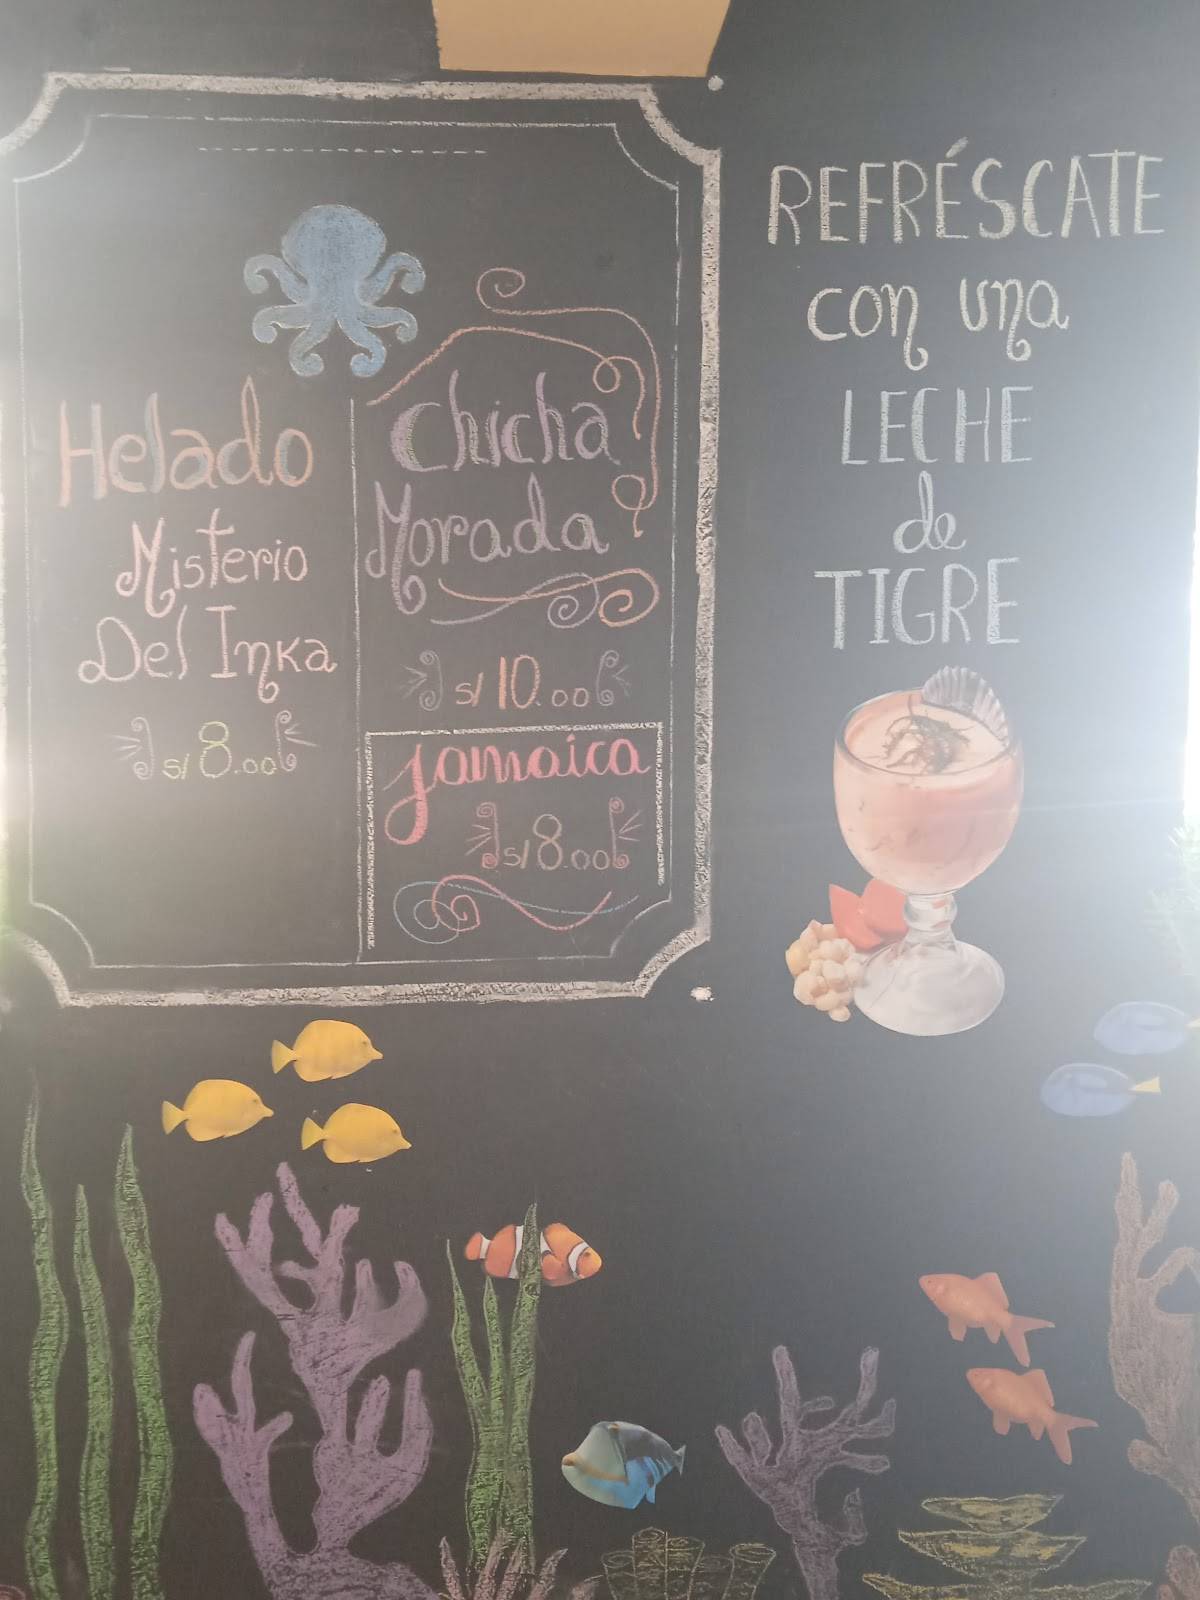 Helado
Misterio
Del Inka
s/ 8.00
Chicha
Morada
s/ 10.00
Jamaica
s/ 8.00
REFRÉSCATE
con una
LECHE
de
TIGRE